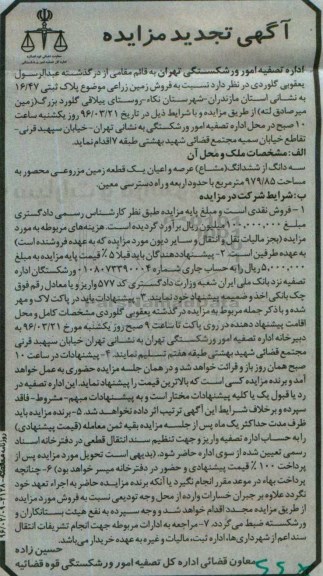 آگهی تجدید مزایده
اداره تصفیه امور ورشکستگی تهران به قائم مقامی از درگذشته عبدالرسول
یعقوبی گلوردی در نظر دارد نسبت به فروش زمین زراعی موضوع پلاک ثبتی ۱۶/۴۷
به نشانی استان مازندران-شهرستان نکاء-روستای ییلاقی گلورد بزرگ(زمین
میرصادق لته) از طریق مزایده و با شرایط ذیل در تاریخ ۹۶/۰۳/۲۱ روز یکشنبه ساعت
۱۰ صبح در محل اداره تصفیه امور ورشکستگی به نشانی تهران-خیابان سپهبد قرنی-
تقاطع خیابان سمیه مجتمع قضائی شهید بهشتی طبقه ۷ اقدام نماید.
الف: مشخصات ملک و محل آن
سه دانگ از ششدانگ(مشاع) عرصه و اعیان یک قطعه زمین مزروعی محصور به
مساحت ۹۷۹/۸۵ مترمربع با حدود اربعه و راه دسترسی معین.
ب: شرایط شرکت در مزایده
۱- فروش نقدی است و مبلغ پایه مزایده طبق نظر کارشناس رسمی دادگستری
ریال برآورد گردیده است. هزینه‌های مربوطه به مورد
مزایده (بجز مالیات نقل و انتقال و سایر دیون مورد مزایده که به عهده فروشنده است)
به عهده طرفین است. ۲- پیشنهاددهندگان باید قبلا ۵٪ قیمت پایه مزایده به مبلغ
۵,۰۰۰,۰۰۰ ریال را به حساب جاری شماره ورشکستگان اداره
تصفیه نزد بانک ملی ایران شعبه وزارت دادگستری کد ۵۷۷ واریز و یا معادل رقم فوق
چک بانکی اخذ و ضمیمه پیشنهاد خود نمایند. ۳- پیشنهادات باید در پاکت لاک و مهر
شده و با ذکر جمله مربوط به مزایده در گذشته یعقوبی گلوردی مشخصات کامل و محل
اقامت پیشنهاد دهنده در روی پاکت تا ساعت ۹ صبح روز یکشنبه مورخ ۹۶/۰۳/۲۱ به
دبیرخانه اداره تصفیه امور ورشکستگی تهران به نشانی تهران خیابان سپهبد قرنی
مجتمع قضائی شهید بهشتی طبقه هفتم تسلیم نمایند. ۴- پیشنهادات در ساعت ۱۰
صبح همان روز باز و قرائت خواهد شد و در همان جلسه مزایده حضوری به عمل خواهد
آمد و برنده مزایده کسی است که بالاترین قیمت را پیشنهاد نماید. این اداره تصفیه در
رد یا قبول یک یا کلیه پیشنهادات مختار است و به پیشنهادات مبهم-مشروط-فاقد
سپرده و برخلاف شرایط این آگهی ترتیب اثر داده نخواهد شد. ۵- برنده مزایده باید
ظرف مدت حداکثر یک ماه پس از جلسه مزایده بقیه ثمن معامله (قیمت پیشنهادی)
را به حساب اداره تصفیه واریز و جهت تنظیم سند انتقال قطعی در دفترخانه اسناد
رسمی تعیین شده از سوی اداره حاضر شود. (بدیهی است تحویل مورد مزایده پس از
پرداخت ۱۰۰٪ قیمت پیشنهادی و حضور در دفترخانه میسر خواهد بود) ۶- چنانچه
پرداخت بهاء در موعد مقرر انجام نگیرد یا آنکه برنده مزایده حاضر به اجراء تعهد خود
نگردد علاوه بر جبران خسارات وارده از محل وجه تودیعی نسبت به فروش مورد مزایده
از طریق مزایده مجدد اقدام خواهد شد و وجه سپرده به نفع هیئت بستانکاران و
ورشکسته ضبط می گردد. ۷- مراجعه به ادارات مربوطه جهت انجام تشریفات انتقال
سند اعم از شهرداری‌ها، اداره ثبت، مالیات و غیره به عهده خریدار می‌باشد.
حسین زاده
معاون قضائی اداره کل تصفیه امور ورشکستگی قوه قضائیه